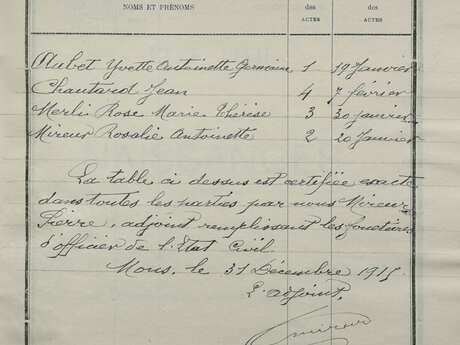 NOMS ET PRÉNOMS des ACTES des ACTES
Aubet Yvette Antoinette Germaine 1 19 Janvier
Chautard Jean 4 7 février
Merli Rose Marie Thérèse 3 30 janvier
Mireur Rosalie Antoinette 2 20 Janvier
La table ci dessus est certifiée exacte
dans toutes les parties par nous Mireur
Pierre, adjoint remplissant les fonctions
d'officier de l'Etat Civil.
Mons, le 31 Décembre 1915
L'adjoint,
Mireur